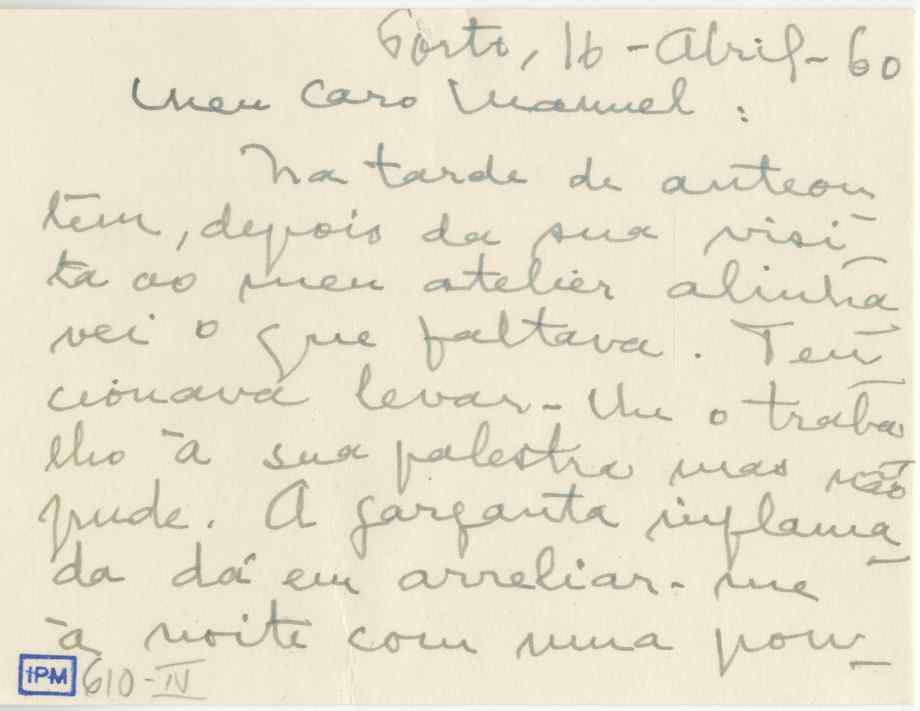 Porto, 16-Abril-60
Meu caro Manuel:
Na tarde de anteon
tem, depois da sua visi-
ta ao meu atelier alinha
vei o que faltava. Ten
cionava levar-lhe o traba
lho à sua palestra mas não
pude. A garganta inflama-
da dá em arreliar-me
à noite com uma pou-
IPM 610-IV